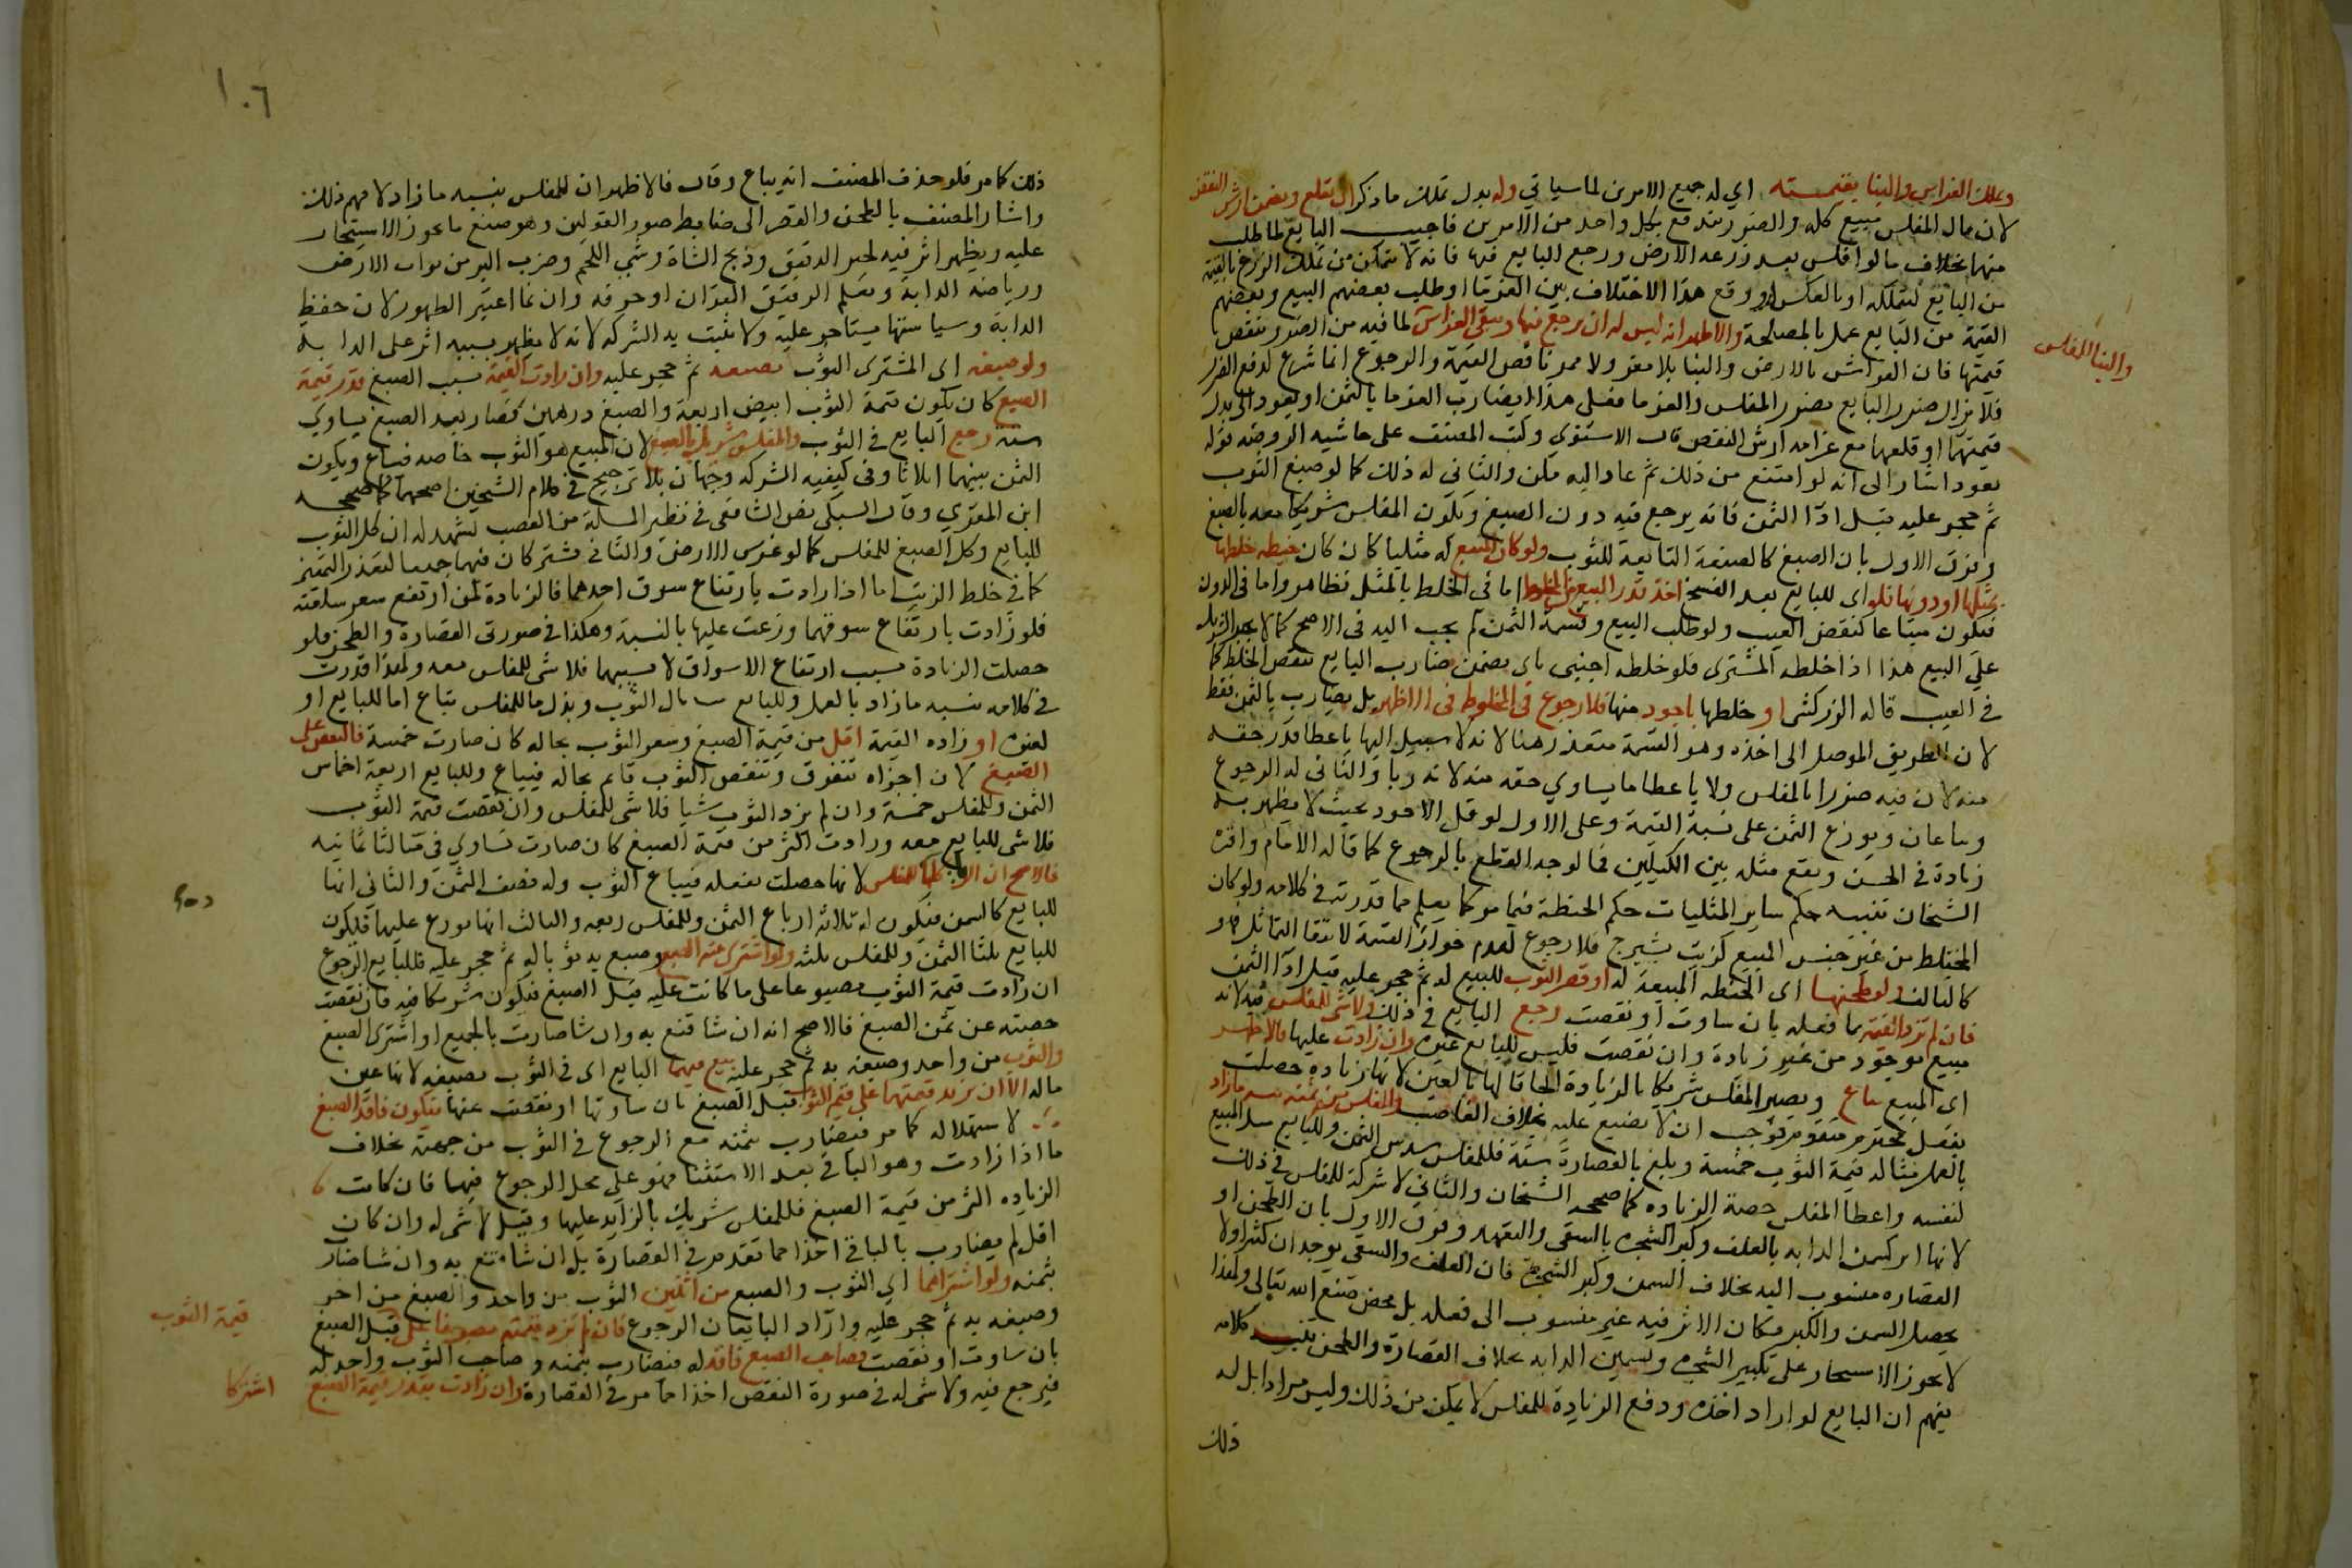 وتملك الغراس والبنا بقيمته اي له جميع الامرين لما سياتي وله بدل تملك ما ذكر ان يقلع ويضمن ارش النقص
لان مال المفلس مبيع كله والضرر يندفع بكل واحد من الامرين فاجيب البايع لما طلب
منهما بخلاف ما لو افلس بعد زرعه الارض ورجع البايع فيها فانه لا يتمكن من تملك الزرع بالقيمة
من البايع ليتملكه او بالعكس او وقع هذا الاختلاف بين الغرما او طلب بعضهم البيع وبعضهم
القيمة من البايع عمل بالمصلحة والاظهر انه ليس له ان يرجع فيها ويبقى الغراس لما فيه من الضرر بنقص
والبنا للمفلس
قيمتها فان الغراس بلا ارض والبنا بلا مقر ولا ممر ناقص القيمة والرجوع انما شرع لدفع الضرر
فلا يزال ضرر البايع بضرر المفلس والغرما فعلى هذا يضارب الغرما بالثمن او يعود الى بدل
قيمتهما او قلعهما مع غرامه ارش النقص قال الاسنوي وكتب المصنف على حاشيه الروضه قوله
يعود اشار الى انه لو امتنع من ذلك ثم عاد اليه مكن والثاني له ذلك كما لو صبغ الثوب
ثم حجر عليه قبل ادا الثمن فانه يرجع فيه دون الصبغ ويكون المفلس شريكا معه بالصبغ
وفرق الاول بان الصبغ كالصفة التابعة للثوب ولو كان المبيع له مثليا كان كان حنطه خلطها
بمثلها او دونها فله اي للبايع بعد الفسخ اخذ قدر المبيع من المخلوط اما في الخلط بالمثل فظاهر واما في الدون
فيكون مسامحا كنقص العيب ولو طلب البيع وقسمة الثمن لم يجب اليه في الاصح كما لا يجبر الشريك
على البيع هذا اذا خلطه المشتري فلو خلطه اجنبي بان يضمن ضارب البايع بنقص الخلط كما
في العيب قاله الزركشي او خلطها باجود منها فلا رجوع في المخلوط في الاظهر بل يضارب بالثمن فقط
لان الطريق الموصل الى اخذه وهو القسمة متعذر هنا لانه لا سبيل اليها باعطا قدر حقه
منه لان فيه ضررا بالمفلس ولا باعطا ما يساوي حقه منه لانه ربا والثاني له الرجوع
ويباعان ويوزع الثمن على نسبة القيمة وعلى الاول لو قل الاجود بحيث لا يظهر به
زيادة في الحسن ويقع مثله بين الكيلين فالوجه القطع بالرجوع كما قاله الامام واقره
الشيخان تنبيه حكم ساير المثليات حكم الحنطة فيما مر كما يعلم مما قدرته في كلامه ولو كان
المختلط من غير جنس المبيع كزيت بشيرج فلا رجوع لعدم جواز القسمة لانتفا التماثل فهو
كالتالف ولو طحنها اي الحنطه المبيعة له او قصر الثوب المبيع له ثم حجر عليه قبل ادا الثمن
فان لم تزد القيمة بما فعله بان ساوت او نقصت رجع البايع في ذلك ولا شي للمفلس فيه لانه
مبيع موجود من غير زيادة وان نقصت فليس للبايع غيره وان زادت عليها فالاظهر
اي المبيع يباع ويصير المفلس شريكا بالزيادة الحاقا لها بالعين لانها زياده حصلت
بفعل محترم متقوم فوجب ان لا يضيع عليه بخلاف الغاصب وللمفلس من ثمنه بنسبة ما زاد
بالعمل مثاله قيمة الثوب خمسة وبلغ بالقصارة ستة فللمفلس سدس الثمن وللبايع مسك المبيع
لنفسه واعطا المفلس حصة الزياده كما صححه الشيخان والثاني لا شركة للمفلس في ذلك
لانها اثر كسمن الدابه بالعلف وكبر الشجره بالسقي والتعهد وفرق الاول بان الطحن او
القصاره منسوب اليه بخلاف السمن وكبر الشجرة فان العلف والسقي يوجدان كثيرا ولا
يحصل السمن والكبر فكان الاثر فيه غير منسوب الى فعله بل محض صنع الله تعالى ولهذا
لا يجوز الاستيجار على تكبير الشجره وتسمين الدابه بخلاف القصارة والطحن تنبيه كلامه
يفهم ان البايع لو اراد اخذه ودفع الزيادة للمفلس لا يمكن من ذلك وليس مرادا بل له
ذلك
١٠٦
ذلك كما مر فلو حذف المصنف انه يباع وقال فالاظهر ان للمفلس بنسبه ما زاد لا فهم ذلك
واشار المصنف بالطحن والقصر الى ضابط صور القولين وهو صنع ما يجوز الاستيجار
عليه ويظهر اثر فيه كخبز الدقيق وذبح الشاة وشي اللحم وضرب اللبن من تراب الارض
ورياضه الدابة وتعلم الرقيق القران او حرفه وانما اعتبر الظهور لان حفظ
الدابة وسياستها يستاجر عليه ولا يثبت به الشركه لانه لا يظهر بسببه اثر على الدابه
ولو صبغه اي المشتري الثوب بصبغه ثم حجر عليه وان زادت القيمة بسبب الصبغ قدر قيمة
الصبغ كان يكون قيمة الثوب ابيض اربعة والصبغ درهمين فصار بعد الصبغ يساوي
ستة رجع البايع في الثوب والمفلس شريك بالصبغ لان المبيع هو الثوب خاصه فيباع ويكون
الثمن بينهما اثلاثا وفي كيفيه الشركه وجهان بلا ترجيح في كلام الشيخين اصحهما كما صححه
ابن المقري وقال السبكي نص الشافعي في نظير المسلة من الغصب يشهد له ان كل الثوب
للبايع وكل الصبغ للمفلس كما لو غرس الارض والثاني يشتركان فيهما جميعا لتعذر التمييز
كما في خلط الزيت اما اذا زادت بارتفاع سوق احدهما فالزيادة لمن ارتفع سعر سلعته
فلو زادت بارتفاع سوقهما وزعت عليها بالنسبة وهكذا في صورتي القصارة والطحن فلو
حصلت الزيادة بسبب ارتفاع الاسواق لا بسببهما فلا شي للمفلس معه ولهذا قدرت
في كلامه بنسبه ما زاد بالعمل وللبايع امساك الثوب وبذل ما للمفلس يباع اما للبايع او
لغيره او زاده القيمة اقل من قيمة الصبغ وسعر الثوب بحاله كان صارت خمسة فالنقص على
الصبغ لان اجزاه تتفرق وتنقص والثوب قايم بحاله فيباع وللبايع اربعة اخماس
الثمن وللمفلس خمسة وان لم يزد الثوب شيا فلا شي للمفلس وان نقصت قيمة الثوب
فلا شي للبايع معه وزادت اكثر من قيمة الصبغ كان صارت تساوي في مثالنا ثمانيه
فالاصح ان الزيادة كلها للمفلس لانها حصلت بفعله فيباع الثوب وله نصف الثمن والثاني انها
للبايع كالسمن فيكون له ثلاثة ارباع الثمن وللمفلس ربعه والثالث انها توزع عليهما فيكون
للبايع ثلثا الثمن وللمفلس ثلثه ولو اشترى منه الصبغ وصبغ به ثوبا له ثم حجر عليه فللبايع الرجوع
ان زادت قيمة الثوب مصبوغا على ما كانت عليه قبل الصبغ فيكون شريكا فيه فان نقصت
حصته عن ثمن الصبغ فالاصح انه ان شا قنع به وان شا ضارب بالجميع او اشترى الصبغ
والثوب من واحد وصبغه به ثم حجر عليه رجع فيهما البايع اي في الثوب بصبغه لانهما عين
ماله الا ان يزيد قيمتهما على قيمة الثوب قبل الصبغ بان ساوتها او نقصت عنها فيكون فاقد الصبغ
لاستهلاله كما مر فيضارب بثمنه مع الرجوع في الثوب من جهته بخلاف
ما اذا زادت وهو الباقي بعد الاستثنا فهو على محل الرجوع فيهما فان كانت
الزياده اكثر من قيمة الصبغ فللمفلس شريك بالزايد عليها وقيل لا شي له وان كان
اقل لم يضارب بالباقي اخذا مما تقدم في القصارة بل ان شا قنع به وان شا ضارب
بثمنه ولو اشتراهما اي الثوب والصبغ من اثنين الثوب من واحد والصبغ من اخر
وصبغه به ثم حجر عليه واراد البايعان الرجوع فان لم تزد قيمته مصبوغا على قبل الصبغ
قيمة الثوب
بان ساوت او نقصت فصاحب الصبغ فاقد له فيضارب بثمنه وصاحب الثوب واجد له
فيرجع فيه ولا شي له في صورة النقص اخذا مما مر في القصارة وان زادت بقدر قيمة الصبغ
اشتركا